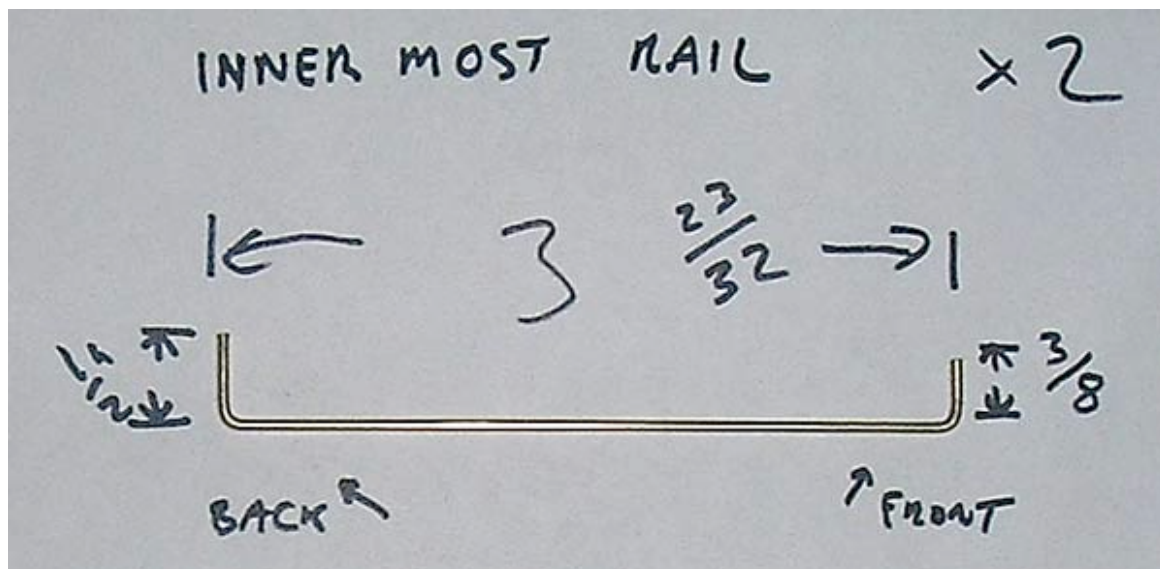 INNER MOST RAIL x 2
3 23/32
1/2"
3/8
BACK
FRONT